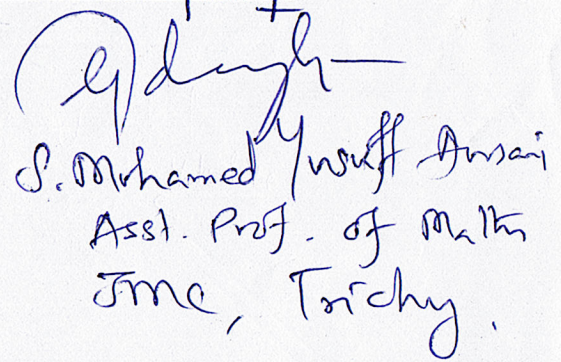 S. Mohamed Yusuff Ansari
Asst. Prof. of Maths
JMC, Trichy.